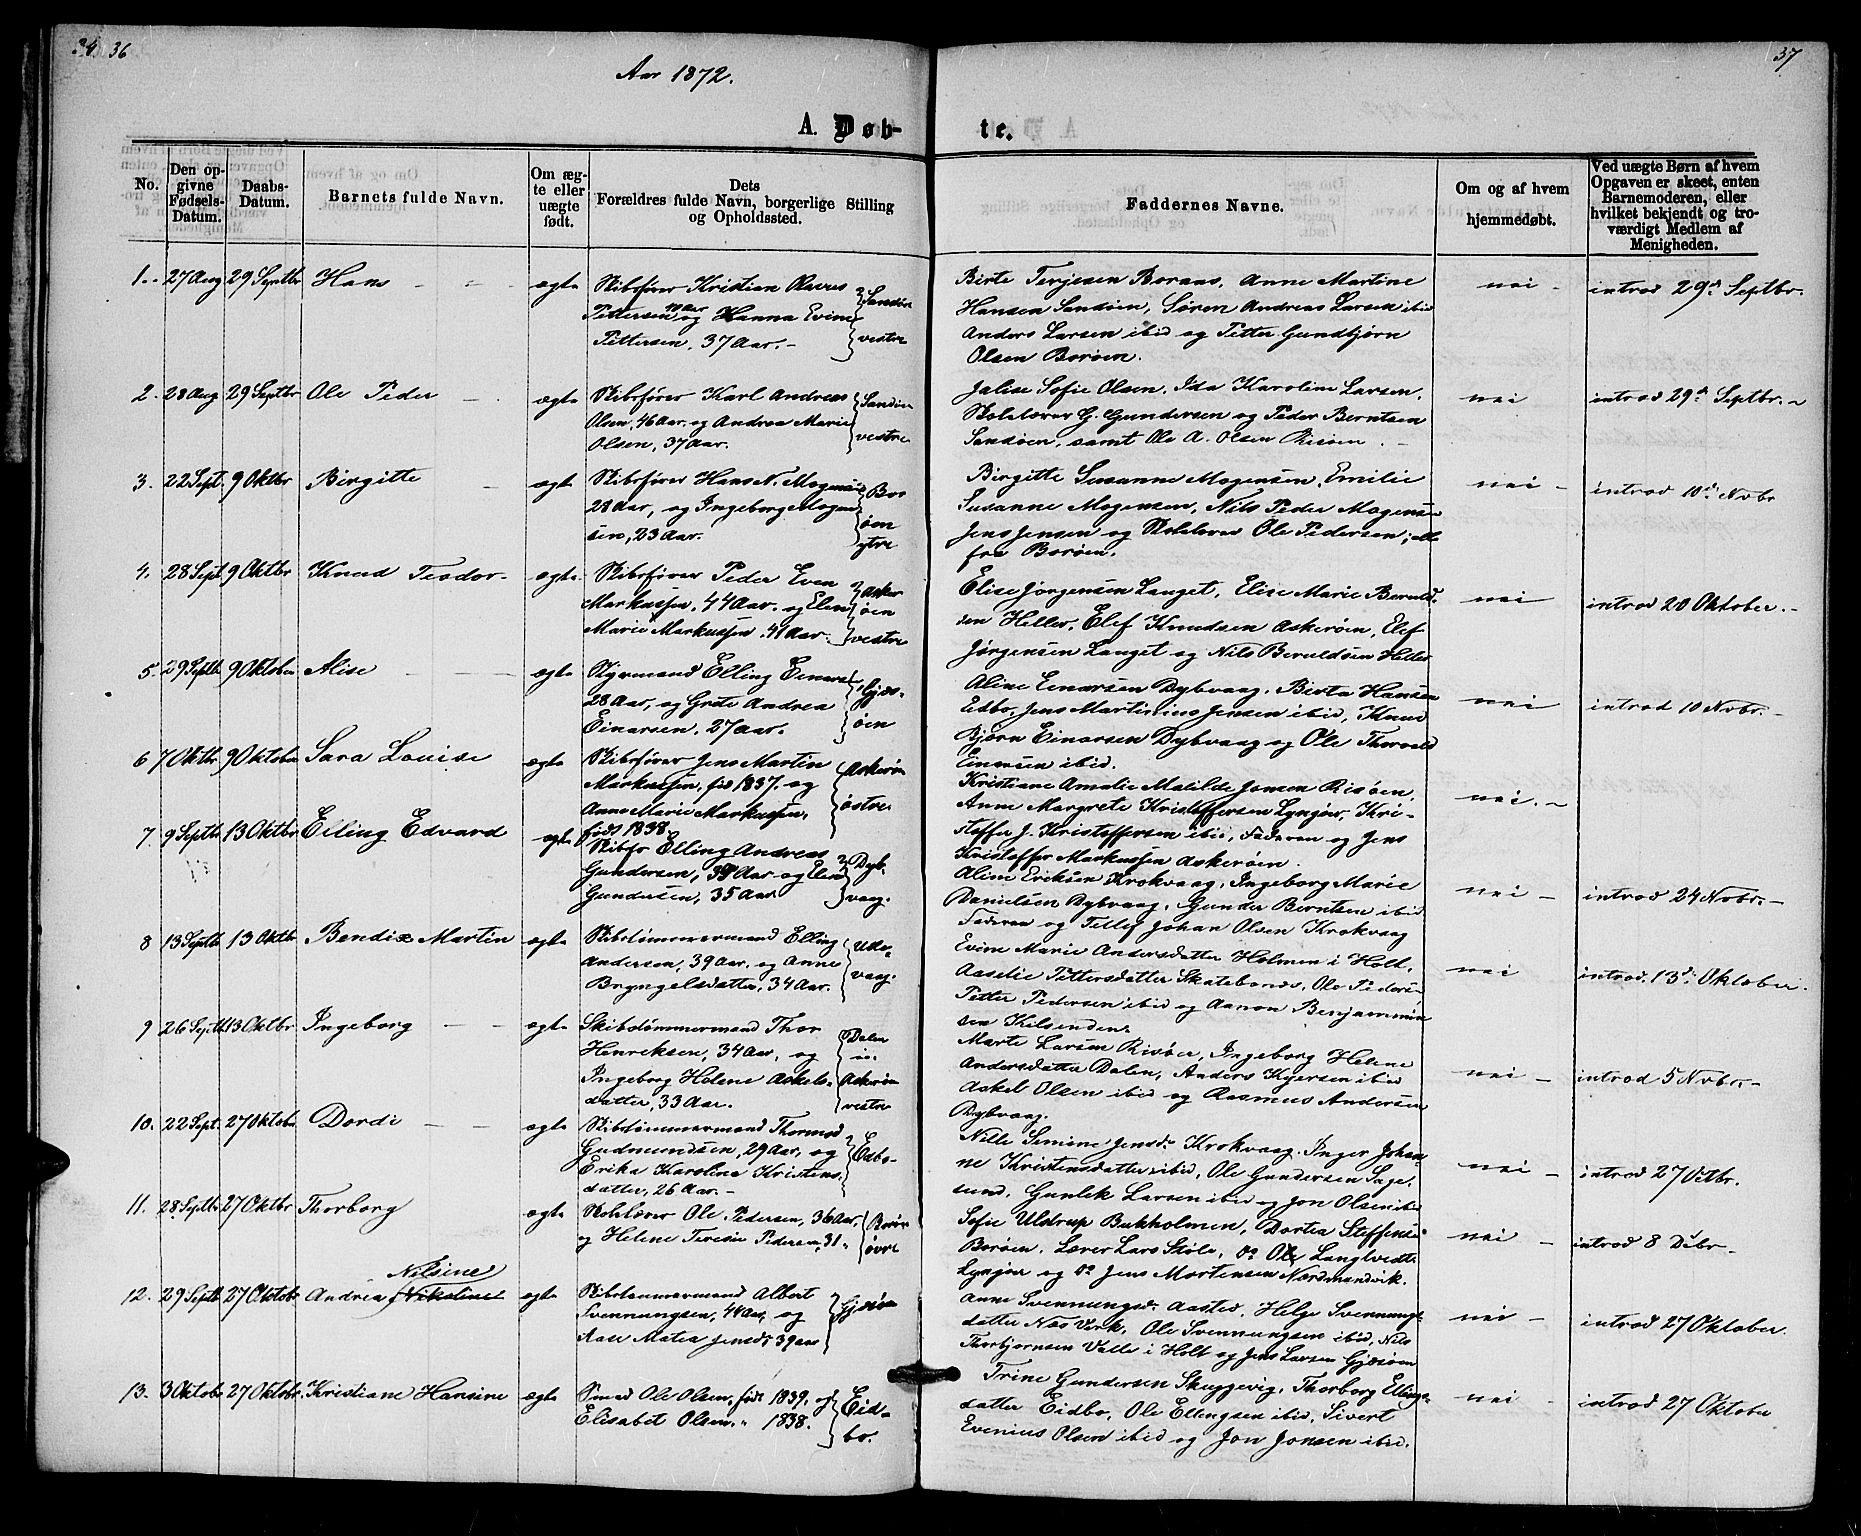 34. 36
Aar 1872.
37
A. Døb-
te.
No.
Den op-
givne
Fødsels-
Datum.
Daabs-
Datum.
Barnets fulde Navn.
Om æg-
te eller
uægte
født.
Dets
Forældres fulde Navn, borgerlige Stilling
og Opholdssted.
Faddernes Navne.
Om og af hvem
hjemmedøbt.
Ved uægte Børn af hvem
Opgaven er skeet, enten
Barnemoderen, eller
hvilket bekjendt og tro-
værdigt Medlem af
Menigheden.
1. 27 Aug 29 Septbr Hans ægte
Skibsfører Kristian Olavus
Pettersen og Hanna Evine
Pettersen, 37 Aar.
Sandøen
vestre
Birte Terjesen Borøens, Anne Martine
Hansen Sandøen, Søren Andreas Larsen ibid
Anders Larsen ibid og Petter Gundbjørn
Olsen Borøen.
nei
introd 29d Septbr.
2. 28 Aug 29 Septbr Ole Peder ægte
Skibsfører Karl Andreas
Olsen, 46 Aar. og Andrea Marie
Olsen, 37 Aar.
Sandøen
vestre
Jalise Sofie Olsen, Ida Karoline Larsen,
Skolelærer G. Gundersen og Peder Berntsen
Sandøen, samt Ole A. Olsen Risøen.
nei
introd 29d Septbr.
3. 22 Sept. 9 Oktbr Birgitte ægte
Skibsfører Hans N. Mogensen
28 Aar, og Ingeborg Mogen
sen, 23 Aar.
Bor
øen
ytre
Birgitte Susanne Mogensen, Emilie
Susanne Mogensen, Nils Peder Mogensen
Jens Jensen og Skolelærer Ole Pedersen, alle
fra Borøen.
nei
introd 10d Novbr
4. 28 Sept 9 Oktbr Knud Teodor ægte
Skibsfører Peder Even
Markussen, 44 Aar. og Elen
Marie Markussen, 41 Aar.
Asker
øen
vestre
Elise Jørgensen Langet, Elise Marie Beruld-
sen Helle, Elef Knudsen Askerøen, Elef
Jørgensen Langet og Nils Beruldsen Helle
nei
introd 20 Oktober.
5. 29 Septbr 9 Oktober Alise ægte
Styrmand Elling Einarsen
28 Aar, og Grete Andrea
Einarsen, 27 Aar.
Gjæs-
øen
Aline Einarsen Dybvaag, Birta Hansen
Edbo, Jens Martinius Jensen ibid, Knud
Bjørn Einarsen Dybvaag og Ole Thorvald
Einarsen ibid.
nei
introd 10 Novbr.
6 7 Oktbr 9 Oktober Sara Louise ægte
Skibsfører Jens Martin
Markussen, fød 1837. og
Anne Marie Markussen,
født 1838.
Askerøen
østre.
Kristiane Amalie Matilde Jensen Risøen,
Anne Margrete Kristoffersen Lyngør, Kri-
stoffer J. Kristoffersen ibid, Faderen og Jens
Kristoffer Markussen Askerøen.
nei.
7 9 Septbr 13 Oktbr Elling Edvard ægte
Skibsfø Elling Andreas
Gundersen, 39 Aar og Elen
Gundersen, 35 Aar.
Dyb-
vaag.
Aline Eriksen Krokvaag, Ingeborg Marie
Danielsen Dybvaag, Gunder Berntsen ibid
Faderen og Tellef Johan Olsen Krokvaag
nei
introd 24 Novbr.
8 13 Septbr 13 Oktbr Bendix Martin ægte
Skibstømmermand Elling
Andersen, 39 Aar, og Anne
Bryngelsdatter, 34 Aar.
Ude-
vaag.
Evine Marie Andersdatter Holmen i Holt,
Aaselie Pettersdatter Skatebonde, Ole Peders-
Petter Pedersen ibid og Aanon Benjamin
sen Kilsenden.
nei
introd. 13d Oktober.
9 26 Septbr 13 Oktbr. Ingeborg ægte
Skibstømmermand Thor
Henriksen, 34 Aar, og
Ingeborg Helene Askels-
datter, 33 Aar.
Dalen
Askerøen
vestre
Marte Larsen Risøen, Ingeborg Helene
Andersdatter Dalen, Anders Kjersen ibid
Askel Olsen ibid og Rasmus Andersen
Dybvaag.
nei
introd 5 Novbr.
10. 22 Sept. 27 Oktober Dordi ægte
Skibstømmermand Thormod
Gudmundsen, 29 Aar, og
Erika Karoline Kristens-
datter, 26 Aar.
Edbo
Nille Simine Jensd. Krokvaag, Inger Johan-
ne Kristensdatter ibid, Ole Gundersen Sage-
sund, Gunlek Larsen ibid og Jon Olsen ibid
nei
introd 27 Octbr.
11. 28 Septbr 27 Oktbr Thorborg ægte
Skolelærer Ole Pedersen, 36 Aar,
og Helene Teresie Pedersen, 31 "
Borøen
øvre
Sofie Uldrup Bukholmen, Dortea Steffens-
Borøen, Lærer Lars Støle, do Ole Langtvedt
Lyngør og do Jens Mortensen Nordmandvik.
nei
introd 8 Debr.
12. 29 Septb 27 Oktobr Andrea Nikoline Nilsine ægte
Skibstømmermand Albert
Svennungsen, 44 Aar, og
Aase Matea Jensd, 39 Aar
Gjæsøen
Anne Svennungsd. Aasted, Helge Svennungs-
datter Næs Værk, Ole Svennungsen ibid, Nils
Thorbjørnsen Valle i Holt og Jens Larsen Gjæsøen
nei
introd 27 Oktober.
13. 3 Oktobr 27 Oktobr. Kristiane Hansine ægte
Smed Ole Olsen, født 1839. og
Elisabet Olsen, " 1838.
Eid-
bo.
Trine Gundersen Skuggevig, Thorborg Ellings-
datter Eidbo, Ole Ellingsen ibid, Sivert
Evenius Olsen ibid og Jon Jonsen ibid.
nei
introd 27 Oktober